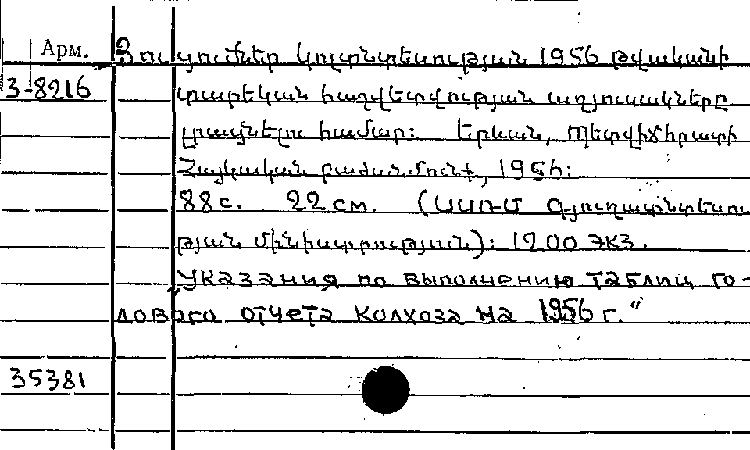 Арм.
3-8216
Ցուցումներ կոլտնտեսության 1956 թվականի
տարեկան հաշվետվության աղյուսակները
լրացնելու համար: Երևան, Պետվիճհրատի
Հայկական բաժանմունք, 1956:
88 с. 22 см. (ՍՍՌՄ Գյուղատնտեսու
թյան մինիստրություն): 1200 экз.
Указания по выполнению таблиц го-
дового отчета колхоза на 1956 г."
35381